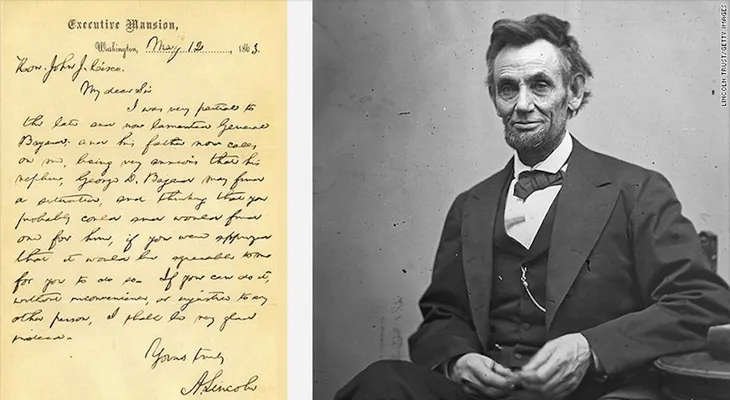 Executive Mansion,
Washington, May 12, 1863.
Hon. John J. Cisco.
My dear Sir
I was very partial to
the late and now lamented General
Bayard. and his father now calls
on me, being very anxious that his
nephew, George D. Bayard may find
a situation, and thinking that you
probably could and would find
one for him, if you were apprized
that it would be agreeable to me
for you to do so. If you can do it,
without inconvenience, or injustice to any
other person, I shall be very glad
indeed.
Yours truly
A. Lincoln
LINCOLN TRUST/GETTY IMAGES